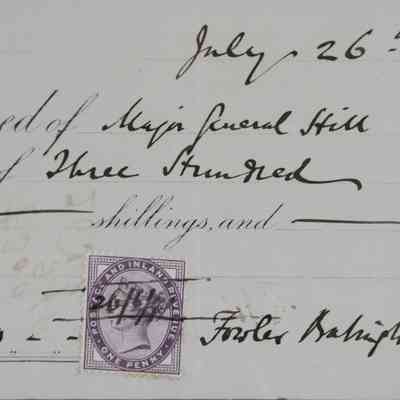 July 26th
ed of Major General Hill
of Three Hundred
shillings, and
POSTAGE AND INLAND REVENUE
ONE PENNY
Fowler